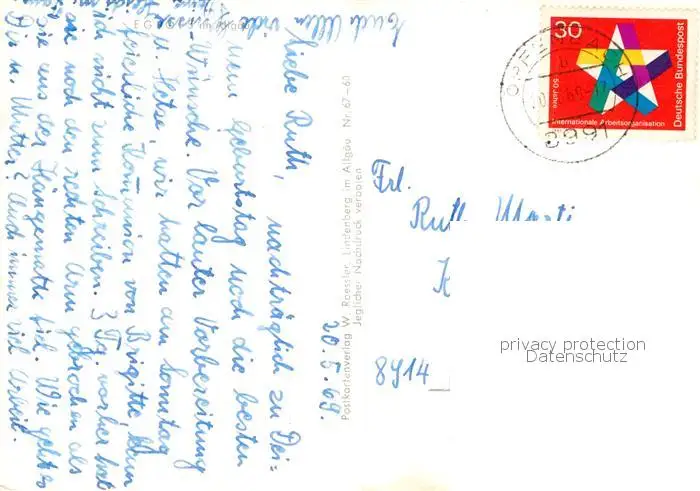 20.5.69.
Liebe Ruth, nachträglich zu Dei=
nem Geburtstag noch die besten
Wünsche. Vor lauter Vorbereitung
u. Hetse, wir hatten am Sonntag
feierliche Komunion von Brigitte, kam
ich nicht zum Schreiben. 3 Tg. vorher hat
sie noch den rechten Arm gebrochen als
sie aus der Hängematte fiel. Wie geht es
Dir u. Mutter? Auch immer viel Arbeit.
Euch Allen viele
Postkartenverlag W. Roessler, Lindenberg im Allgäu Nr. 67-60
Jeglicher Nachdruck verboten
Frl.
Ruth
8914
30
50 Jahre
Internationale Arbeitsorganisation
Deutsche Bundespost
8991
privacy protection
Datenschutz